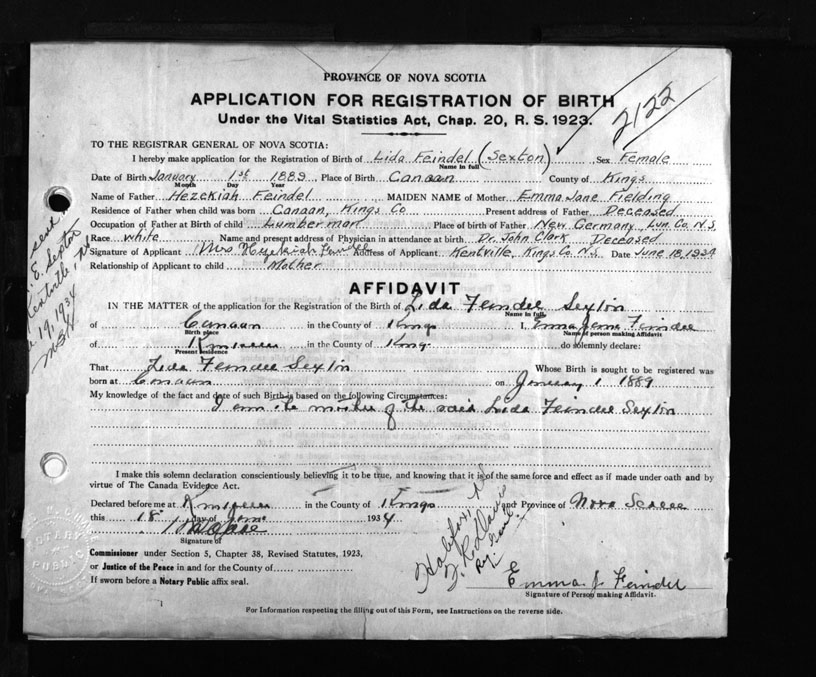 PROVINCE OF NOVA SCOTIA
2122
APPLICATION FOR REGISTRATION OF BIRTH
Under the Vital Statistics Act, Chap. 20, R. S. 1923.
TO THE REGISTRAR GENERAL OF NOVA SCOTIA:
I hereby make application for the Registration of Birth of Lida Feindel (Sexton), Sex Female
Name in full
Date of Birth January 1st 1889 Place of Birth Canaan County of Kings
Month Day Year
Name of Father Hezekiah Feindel MAIDEN NAME of Mother Emma Jane Fielding
Residence of Father when child was born Canaan, Kings Co Present address of Father Deceased
Occupation of Father at Birth of child Lumberman Place of birth of Father New Germany, Lun. Co. N.S.
Race white Name and present address of Physician in attendance at birth Dr. John Clark Deceased
Signature of Applicant Mrs Hezekiah Feindel Address of Applicant Kentville, Kings Co. N.S. Date June 18, 1934
Relationship of Applicant to child Mother
AFFIDAVIT
IN THE MATTER of the application for the Registration of the Birth of Lida Feindel Sexton
Name in full
of Canaan in the County of Kings I, Emma Jane Feindel
Birth place Name of person making Affidavit
of in the County of Kings do solemnly declare:
Present residence
That Lida Feindel Sexton Whose Birth is sought to be registered was
born at Canaan on January 1 1889
My knowledge of the fact and date of such Birth is based on the following Circumstances:
I am the mother of the said Lida Feindel Sexton
I make this solemn declaration conscientiously believing it to be true, and knowing that it is of the same force and effect as if made under oath and by
virtue of The Canada Evidence Act.
Declared before me at in the County of Kings and Province of Nova Scotia
this 18 day of June 1934
Signature of
Commissioner under Section 5, Chapter 38, Revised Statutes, 1923,
or Justice of the Peace in and for the County of
If sworn before a Notary Public affix seal.
Halifax, N
Emma J. Feindel
Signature of Person making Affidavit.
For Information respecting the filling out of this Form, see Instructions on the reverse side.
E. Sexton
Kentville, N
19, 1934
NOTARY
PUBLIC